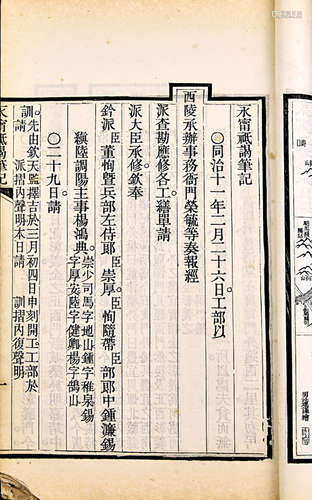 永甯祗謁筆記
○同治十一年二月二十六日工部以
西陵承辦事務衙門榮毓等奏報經
派查勘應修各工繕單請
派大臣承修欽奉
鈐派臣董恂暨兵部左侍郎臣崇厚臣恂隨帶臣部郎中鍾濂錫
縝陸調陽主事楊鴻典崇少司馬字地山鍾字稚泉錫
字厚安陸字健卿楊字鶴山
○二十九日請
訓先由欽天監擇吉於三月初四日申刻開工工部於
請派摺內聲明本日請訓摺內復聲明
永甯祗謁筆記